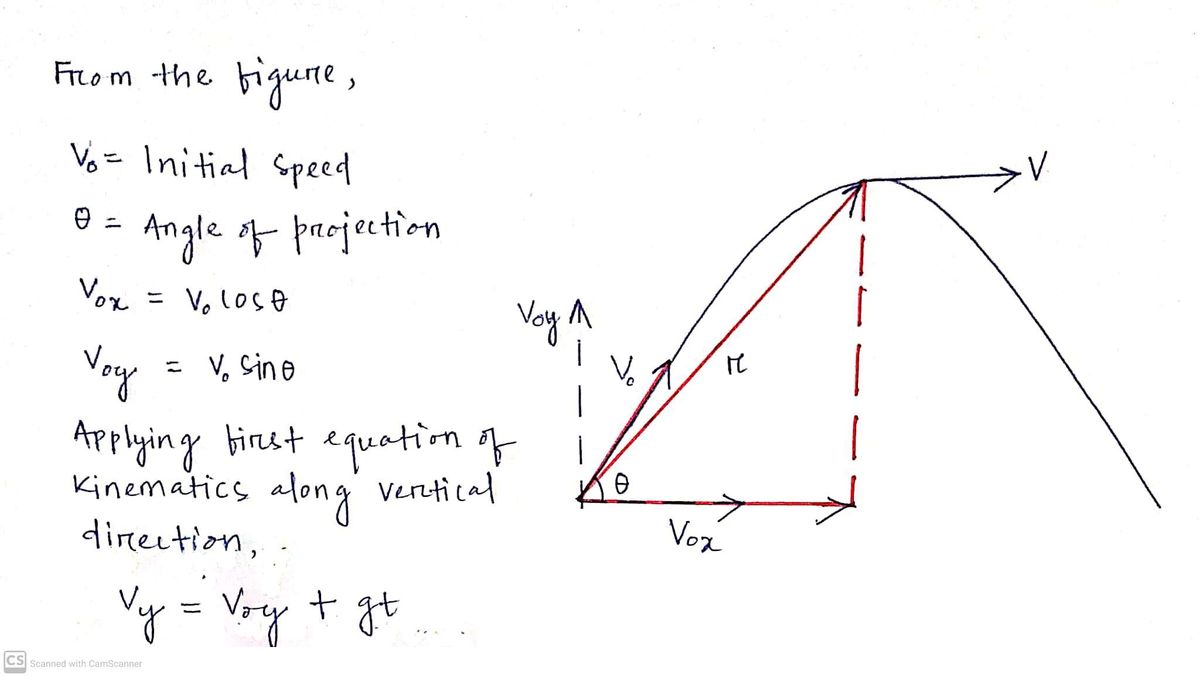 From the figure,
V₀ = Initial speed
θ = Angle of projection
V₀ₓ = V₀ cosθ
V₀y = V₀ sinθ
Applying first equation of
kinematics along vertical
direction,
Vy = V₀y + gt ....
V
V₀y
V₀
r
θ
V₀ₓ
CS Scanned with CamScanner